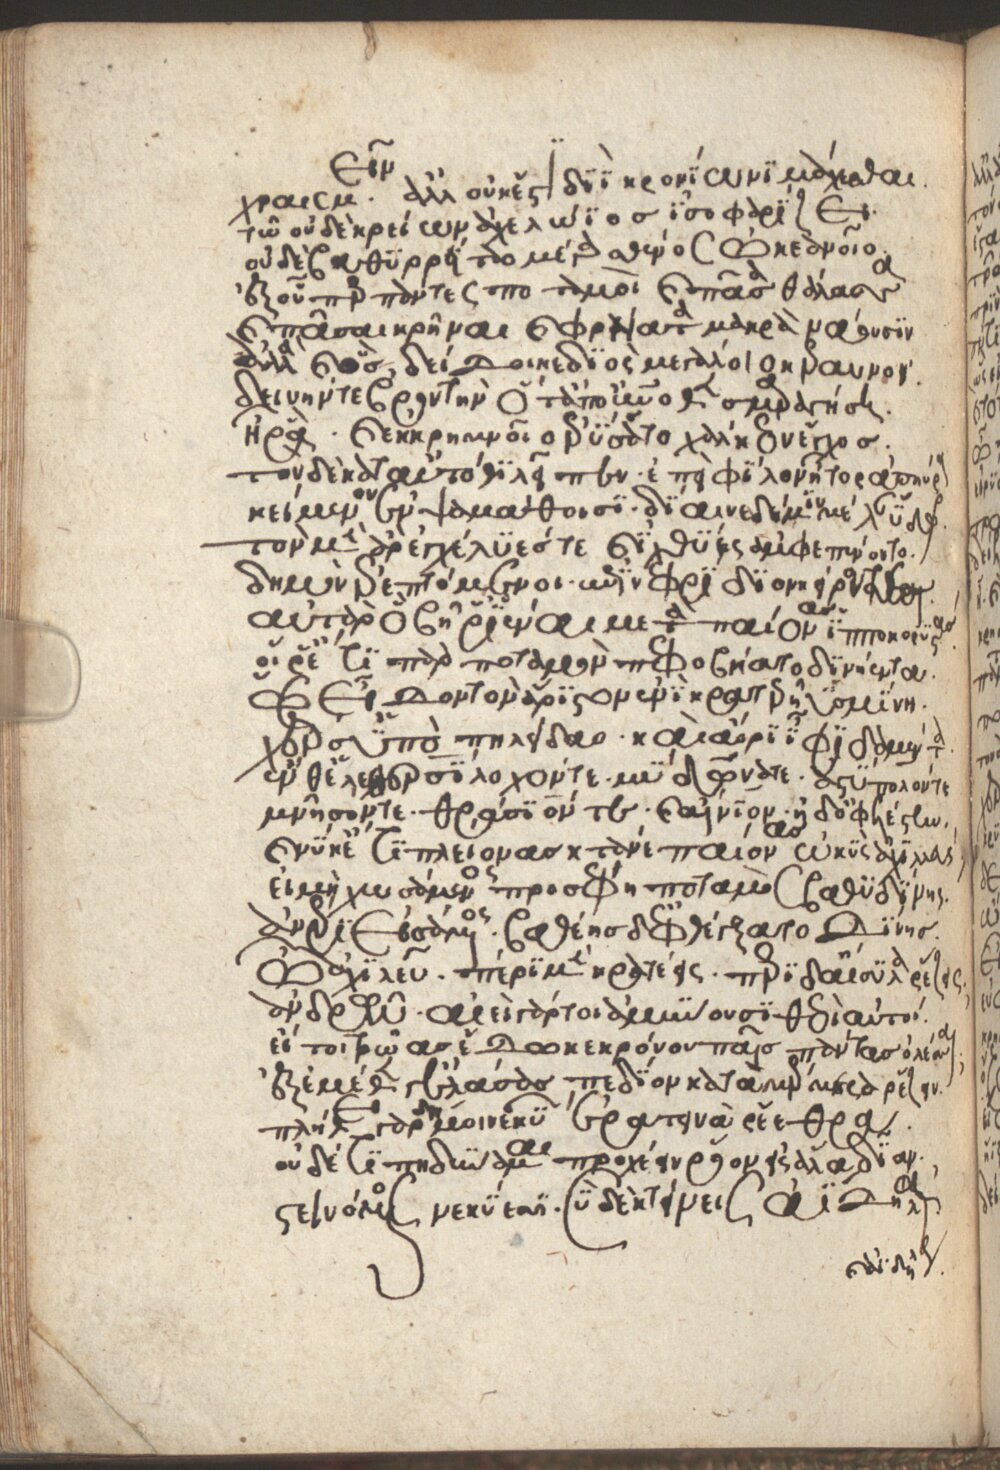 χραισμεῖν. ἀλλ οὐκ ἔστι διῒ κρονίωνϊ μάχεσθαι.
τῶ οὐδὲ κρείων ἀχελώϊος ἰσοφαρίζει
οὐδὲ βαθϋρρείταο μέγα σθένος ὠκεανοῖο.
ἐξ οὗ περ πάντες ποταμοὶ καὶ πᾶσα θάλασσα
καὶ πᾶσαι κρῆναι καὶ φρείατα μακρὰ νάουσϊν
ἀλλὰ καὶ ὃς δείδοικε δϊὸς μεγάλοιο κεραυνον.
δεινήν τε βροντὴν ὅτ ἀπ οὐρανόθεν σμαραγήση.
ἦ ῥα. καὶ ἐκ κρημνοῖο ἐρύσατο χάλκεον ἔγχος.
τον δὲ κατ αὐτόθϊ λεῖπεν. ἐπεὶ φίλον ἦτορ ἀπηύρα
κείμενον ἐν ψαμάθοισϊ. δϊαινε δέ μϊν μέλαν ὕδωρ.
τον μὲν ἀρ ἐγχέλϋές τε καὶ ϊχθϋες ἀμφεπένοντο.
δημὸν ἐρεπτόμενοι. ἐπινεφρϊδϊον κείροντες.
αὐτὰρ ὃ βῆ ῥ ϊέναι μετὰ παίονας ϊπποκορυστάς.
οἵ ῥ ἔτϊ πὰρ ποταμὸν πεφοβήατο δϊνήεντα.
ὡς εἶδον τὸν ἄρϊστον ἐνϊ κρατερῆ ὑσμίνη.
χερσϊν ὕπο πηλείδαο. καὶ ἄορϊ ἶφϊ δαμέντα.
ἔνθ ἕλε θερσϊλοχόν τε. μϋδωνά τε. ἀστϋπολόν τε
μνῆσόν τε. θράσϊόν τε. καὶ αἴνϊον. ἠδ ὀφελέστην.
καὶ νϋ κ ἔτϊ πλείονας κτάνε παίονας ὠκϋς ἀχϊλλεύς
εἰ μὴ χωσάμενος προσέφη ποταμὸς βαθϋδϊνης.
ἀνέρϊ εἰσάμενος. βαθέης δ ἐφθέγξατο δϊνης.
ὦ ἀχϊλεῦ. πέρϊ μὲν κρατέεις. περϊ δ αἴσυλα ῥέζεις.
ἀνδρῶν. αἰεὶ γάρ τοι ἀμϋνουσϊ θεοὶ αὐτοί.
εἴ τοι τρῶας ἔδωκε κρόνου παῖς πάντας ὀλέσαι.
ἐξ ἐμέθεν γ ἐλάσας πεδϊον κατα μέρμερα ῥέζειν.
πλήθει γὰρ δή μοι νεκϋων ἐρατεινὰ ῥέεθρα.
οὐδέ τϊ πη δϋναμαι προχέειν ῥόον εἰς ἅλα δϊαν.
στεινόμενος νεκϋεσσϊ. σϋ δὲ κτείνεις ἀϊδήλως